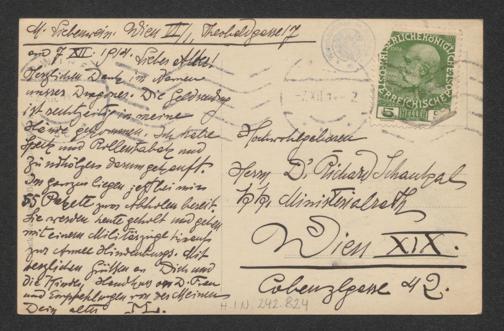 M. Liebenwein: Wien VI/1, Theobaldgasse 17
am 7. XII. 1914. Lieber Alter!
Herzlichen Dank im Namen
unsrer Dragoner. Die Geldsendung
ist rechtzeitig in meine
Hände gekommen. Ich habe
Speck und Rollentabak und
Zündhölzer darum gekauft.
Im ganzen liegen jetzt bei mir
55 Pakete zur Abholen bereit.
Sie werden heute geholt und gehen
mit einem Militärzuge
zur Armee Hindenburgs. Mit
herzlichen Grüßen an Dich und
die Kinder, Handkuss an D. Frau
und Empfehlungen von der Meinen
Dein alter M.
KAISERLICHE KÖNIGLICHE
ÖSTERREICHISCHE
5 HELLER
7 XII 14
2
Hochwohlgeboren
Herrn Dr Richard Schaukal
k. k. Ministerialrath
Wien XIX.
Cobenzlgasse 42.
H.I.N. 242.824